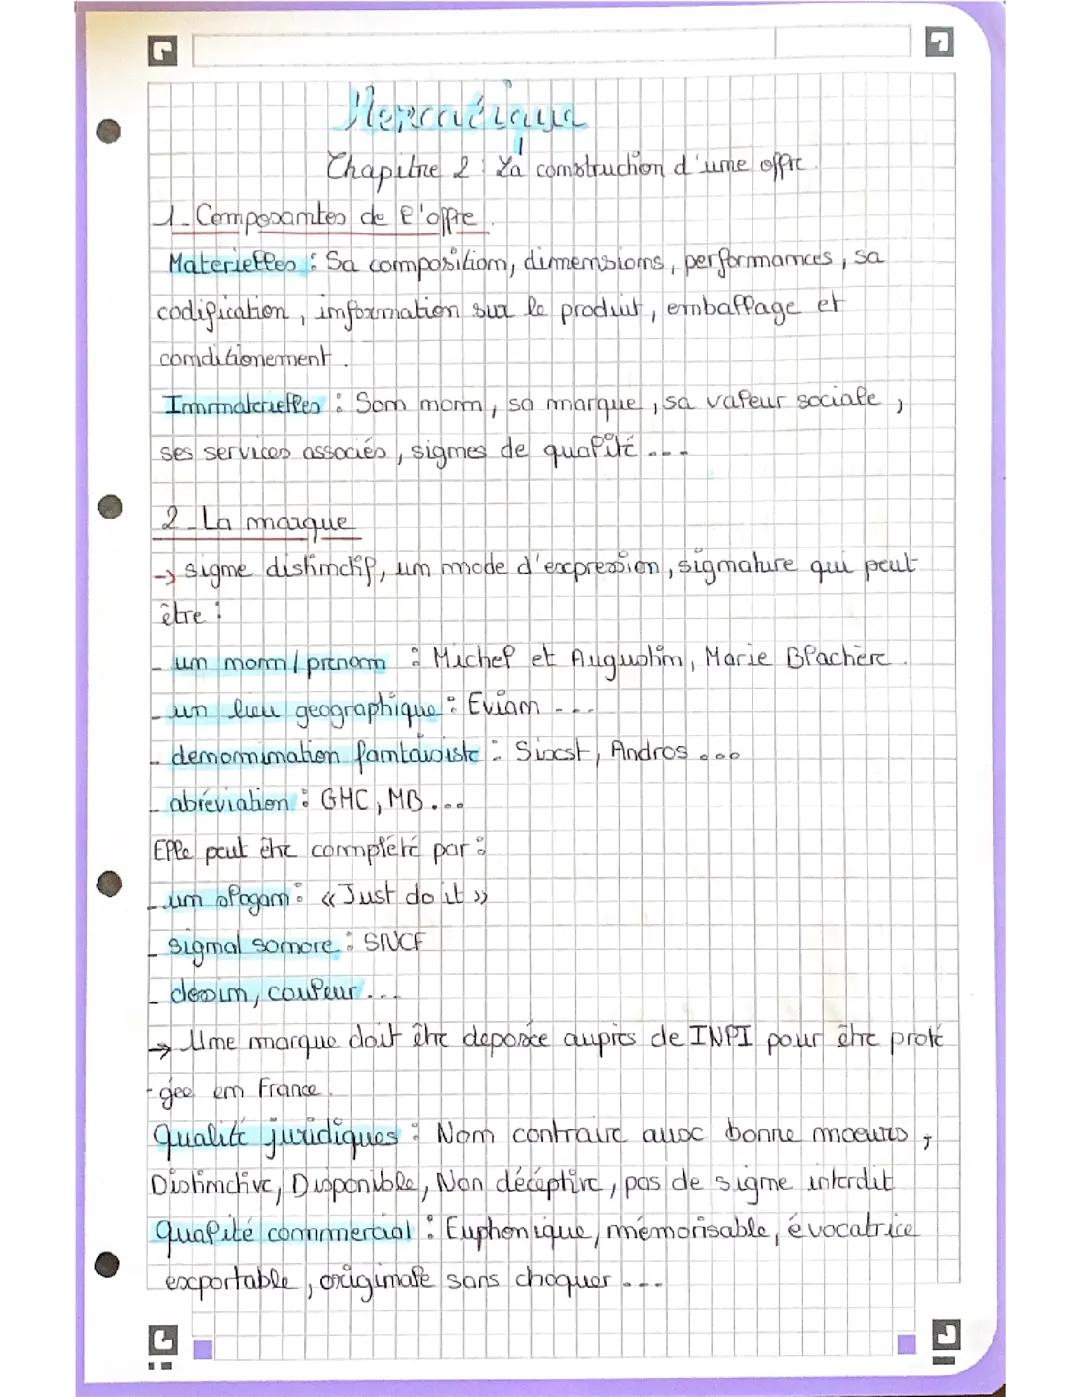 Mercatique
Chapitre 2 : La construction d'une offre.
1_ Composantes de l'offre.
Materielles : Sa composition, dimensions, performances, sa
codification, information sur le produit, emballage et
conditionement.
Immaterielles : Son nom, sa marque, sa valeur sociale,
ses services associés, signes de qualité ...
2_La marque
→ signe distinctif, un mode d'expression, signature qui peut
être :
_ un nom/prenom : Michel et Augustin, Marie Blachère.
_ un lieu geographique : Evian ...
_ denomination fantaisiste : Sixst, Andros ...
_ abréviation : GMC, MB...
Elle peut être complété par :
_ un slogan : « Just do it »
_ signal sonore : SNCF
_ dessin, couleur ...
→ Une marque doit être deposée auprès de INPI pour être proté
-gee en France.
Qualité juridiques : Nom contraire aux bonne moeurs,
Distinctive, Disponible, Non déceptive, pas de signe interdit
Qualité commercial : Euphonique, mémorisable, évocatrice
exportable, originale sans choquer ...